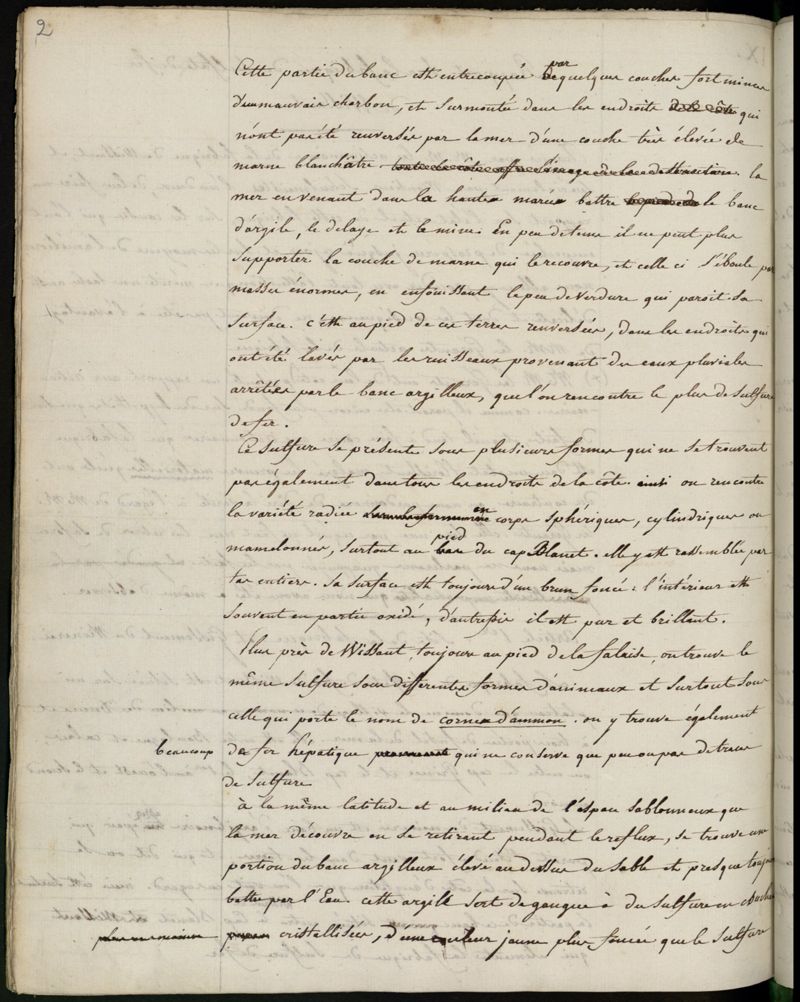 2
Cette partie du banc est entrecoupée par quelques couches fort minces
d'un mauvais charbon, et surmontée dans les endroits de la côte qui
n'ont pas été renversés par la mer d'une couche très élevée de
marne blanchâtre. toute la côte offre l'image de la destruction. la
mer en venant dans la haute marée battre le pied de le banc
d'argile, le délaye et le mine. En peu de tems il ne peut plus
supporter la couche de marne qui le recouvre, et celle ci s'éboule par
masses énormes, en enfouissant le peu de verdure qui paroit sa
surface. c'est au pied de ces terres renversées, dans les endroits qui
ont été lavés par les ruisseaux provenant des eaux pluviales
arrêtées par le banc argilleux, que l'on rencontre le plus de sulfure
de fer.
Ce sulfure se présente sous plusieurs formes qui ne se trouvent
pas également dans tous les endroits de la côte. ainsi on rencontre
la variété radiée en corps sphériques, cylindriques ou
mamelonnés, surtout au bas pied du cap Blanet. elle y est rassemblée par
tas entiers. sa surface est toujours d'un brun foncé : l'intérieur est
souvent en partie oxidé, d'autrefois il est pur et brillant.
Plus près de Wissant, toujours au pied de la falaise, on trouve le
même sulfure sous différentes formes d'animaux et surtout sous
celle qui porte le nom de cornes d'ammon. on y trouve également
beaucoup de fer hépatique qui ne conserve que peu ou pas de traces
de sulfure
à la même latitude et au milieu de l'espace sablonneux que
la mer découvre en se retirant pendant le reflux, se trouve une
portion du banc argilleux élevé au dessus du sable et presque toujours
battue par l'Eau. cette argile sert de gangue à du sulfure en
plus ou moins cristallisées, d'une couleur jaune plus foncée que le sulfure